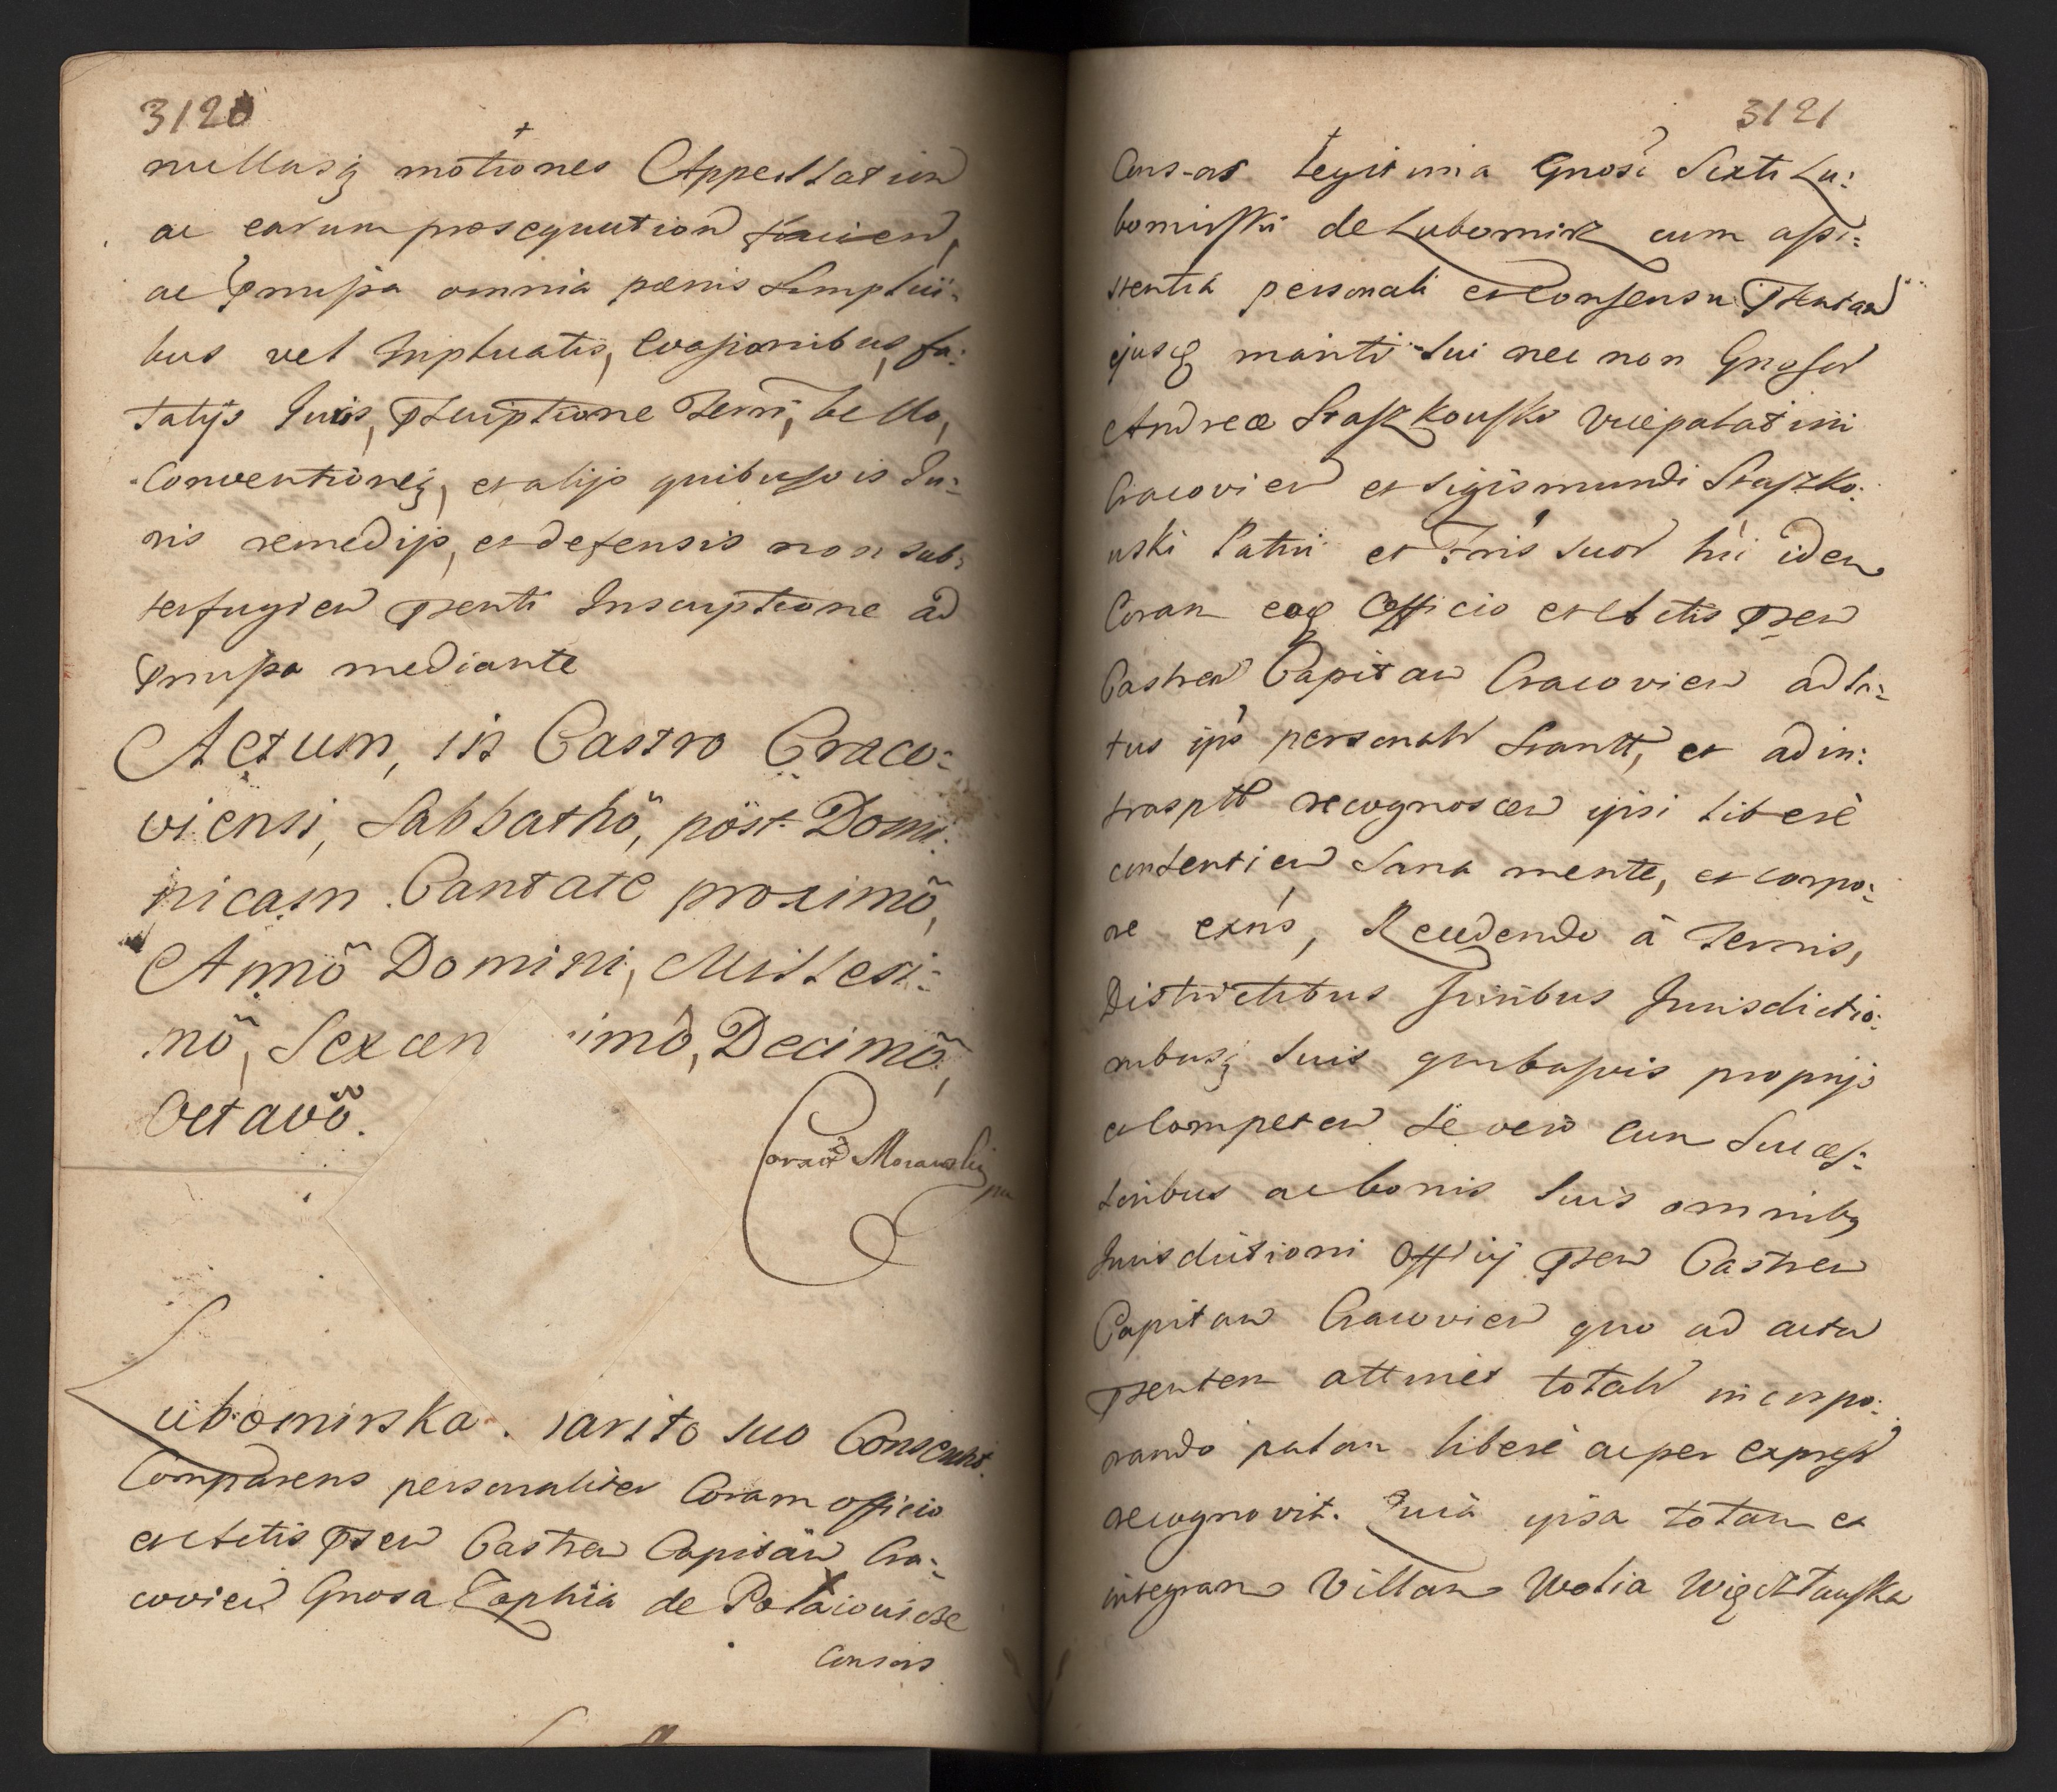 3120
nullasq motiones Appellation
ac earum prosequution facien,
ac Pmissa omnia pœnis Simplici-
bus vel Triplicatis, Evasionibus, fa:
talijs Juris, Pscriptione Terri, bello,
Conventioneq, et alijs quibusvis Ju:
ris remedijs, et defensis non sub:
terfugien Psenti Inscriptione ad
Pmissa mediante
Actum, in Castro Craco:
viensi, Sabbathô, pöst Domi:
nicam Cantate proximô,
Annô Domini, Millesi:
mô, Sexcen imô, Decimô,
Octavô.
Morawski
Lubomirska arito suo Consentit.
Comparens personaliter Coram officio
et Actis Psen Castren Capitan Cra:
covien Gnosa Zophia de Polaiowicze
Consors
3121
Cons-ors Legitima Gnosi Sixti Lu:
bomirski de Lubomirz cum assi:
stentia personali et Consensu
ejusq mariti sui nec non Gnosor
Andreæ Straszkouski Vicepalatini
Cracovien et Sigismundi Straszko:
uski Patrui et Fris suor hic iden
Coran eoq Officio et Actis Psen
Castren Capitan Cracovien ad la:
tus ips personalr Stantt, et ad in:
frasptt recognoscen ipsi liberè
consentien Sana mente, et corpo:
re exns, Recedendo â Terris,
Districtibus Juribus Jurisdictio:
nibusq suis quibusvis proprijs
et Competen se vero cum Succes:
soribus ac bonis suis omnibq
Jurisdictioni Officij Psen Castren
Capitan Cracovien quo ad actu
Psentem attinet totalr incorpo:
rando palam liberè ac per expressu
recognovit. Quia ipsa totam et
integram Villam Wolia Więcztauska